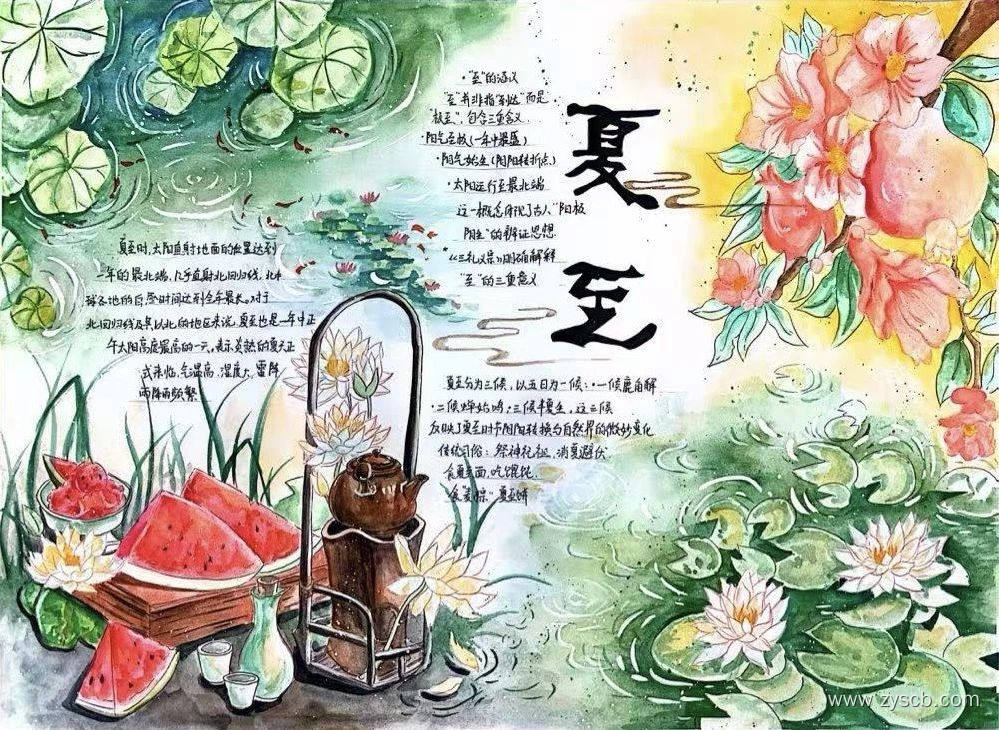 夏至
·"至"的涵义
"至"并非指"到达"而是
"极至"，包含三重含义
·阳气至极(一年中最盛)
·阳气始生(阴阳转折点)
·太阳运行至最北端
这一概念体现了古人"阳极
阴生"的辩证思想
《三礼义宗》明确解释
"至"的三重意义
夏至时，太阳直射地面的位置达到
一年的最北端，几乎直射北回归线，北半
球各地的白昼时间达到全年最长。对于
北回归线及其以北的地区来说，夏至也是一年中正
午太阳高度最高的一天，表示炎热的夏天正
式来临，气温高、湿度大、雷阵
雨降雨频繁
夏至分为三候，以五日为一候：·一候鹿角解
·二候蝉始鸣；三候半夏生，这三候
反映了夏至时节阴阳转换与自然界的微妙变化
传统习俗：祭神祀祖、消夏避伏
食夏至面，吃馄饨
食"麦粽"夏至饼
www.zyscb.com